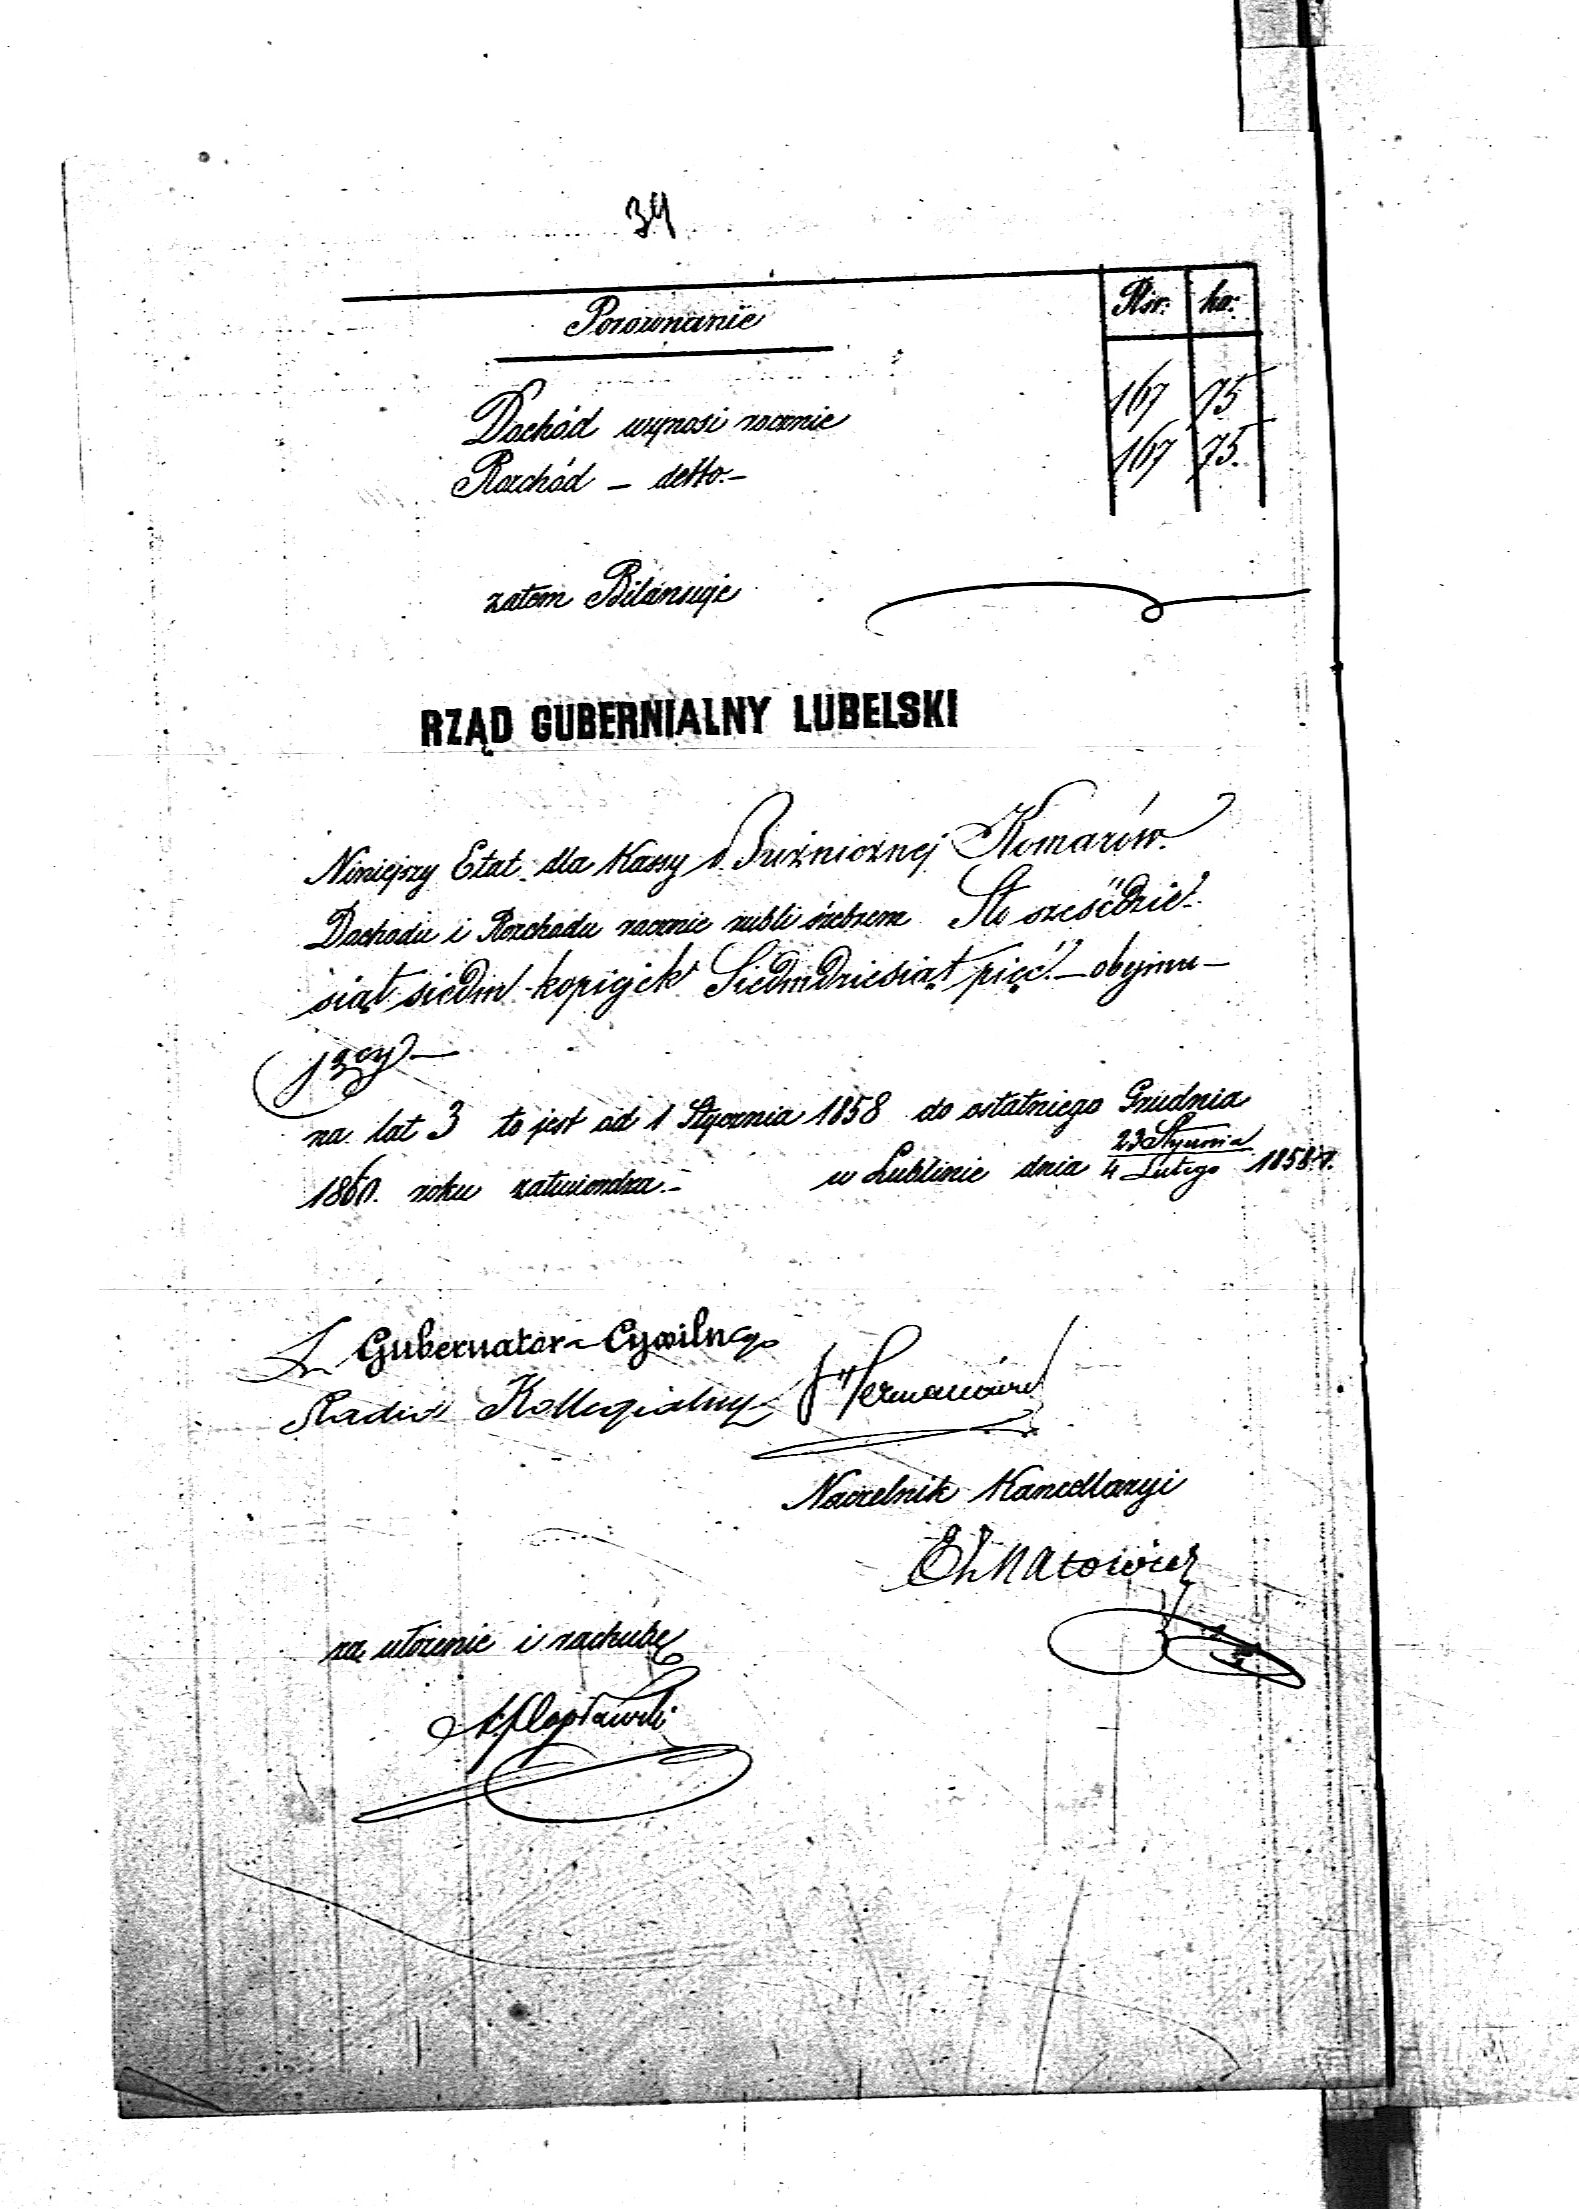 34
Porównanie Rsr: ko:
Dochód wynosi rocznie 167 75
Rozchód – detto.– 167 75.
zatem Bilansuje
RZĄD GUBERNIALNY LUBELSKI
Niniejszy Etat dla Kassy Bużnicznej Komarów
Dochodu i Rozchodu rocznie rubli srebrem Sto sześćdzie-
siąt siedm kopijek Siedmdziesiąt pięć – obejmu-
jący –
na lat 3 to jest od 1 Stycznia 1858 do ostatniego Grudnia
1860. roku zatwierdza.– w Lublinie dnia 23 Stycznia / 4 Lutego 1858 r.
Gubernatora Cywilnego
Radca Kollegialny
Naczelnik Kancellaryi
za ułożenie i rachubę